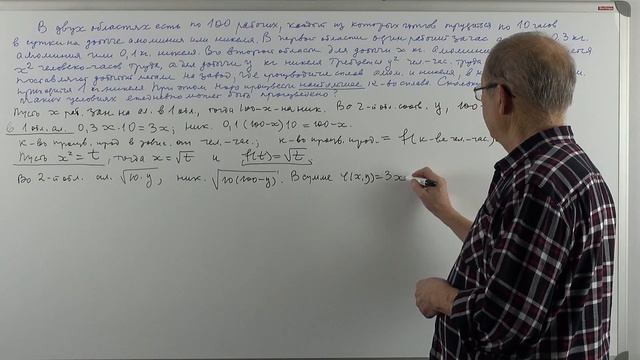 В двух областях есть по 100 рабочих, каждый из которых готов трудиться по 10 часов
в сутки на добыче алюминия или никеля. В первой области один рабочий за час 0,3 кг
алюминия или 0,1 кг никеля. Во второй области для добычи x кг алюминия
x² человеко-часов труда, а для добычи y кг никеля требуется y² чел.-час. труда
поставляют добытый металл на завод, где производится сплав алюм. и никеля, в
приходится 1 кг никеля. При этом надо произвести наибольшее к-во сплава. Сколько
таких условиях ежедневно может быть произведено?
Пусть x раб. зан на ал. в 1 обл., тогда 100-x-на ник. Во 2-й обл. соотв. y, 100-
В 1 обл. ал. 0,3x·10=3x; ник. 0,1(100-x)10=100-x.
к-во произв. прод в завис. от чел.-час.; к-во произв. прод. = f(к-ва чел.-час.)
Пусть x²=t, тогда x=√t и f(t)=√t,
Во 2-й обл. ал. √10·y, ник. √10(100-y). В сумме φ(x,y)=3x